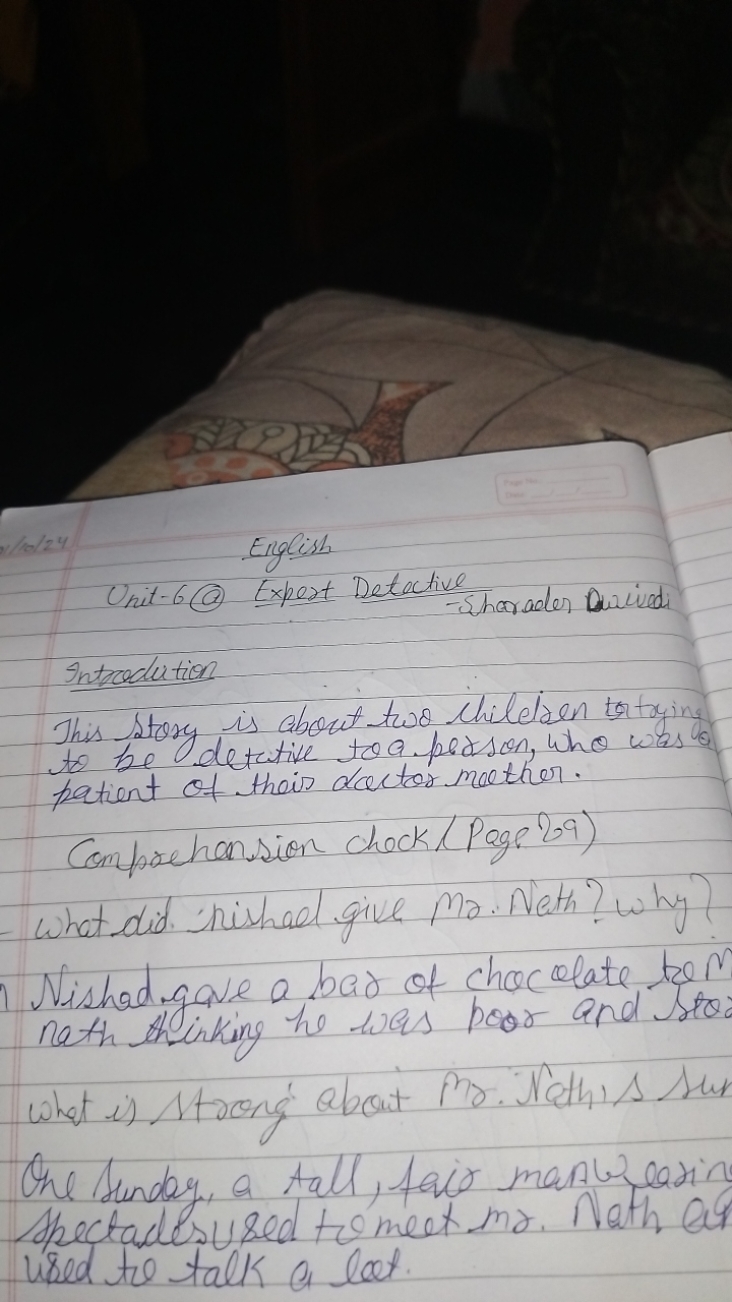 Page No.:
Date:
/10/24
English
Unit-6 @ Expert Detective
-Sharader Dwivedi
Introdution
This story is about two children to trying
to be detctive to a person, who was a
patient of their doctor mother.
Comprehension check (Page 209)
What did nishad give Mr. Nath? why?
Nishad gave a bar of chocolate to M
nath thinking he was poor and
What is strong about Mr. Nath's sun
One Sunday, a tall, fair man wearing
spectacles used to meet mr. Nath
used to talk a lot.